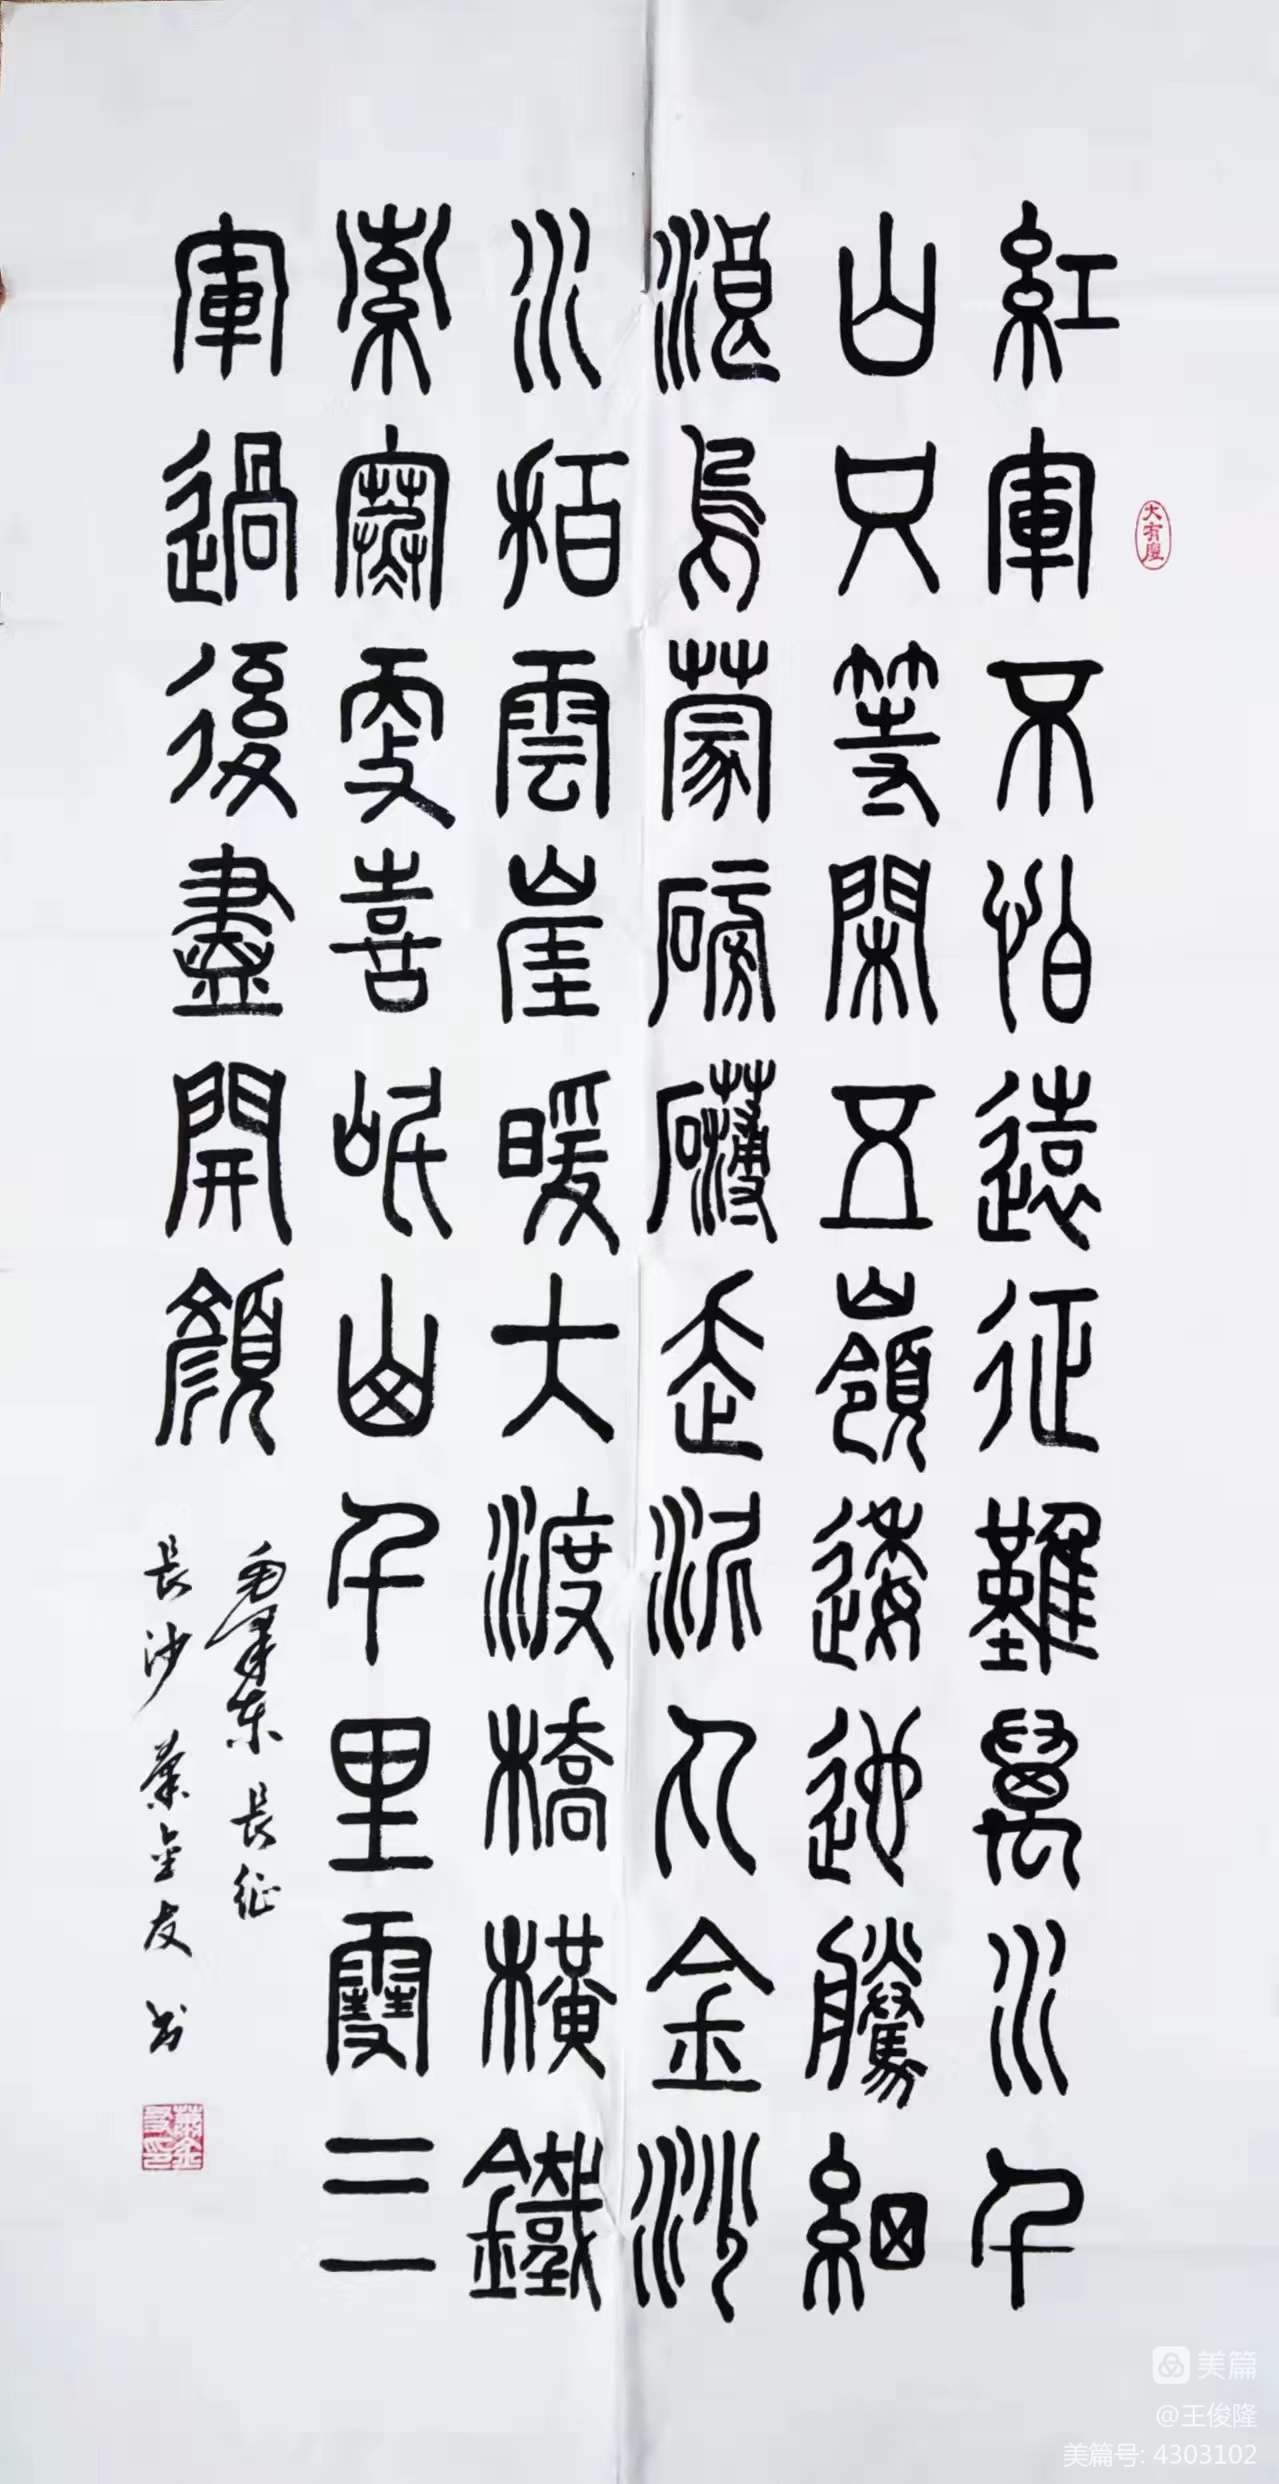 紅軍不怕遠征難萬水千
山只等閑五嶺逶迤騰細
浪烏蒙磅礴走泥丸金沙
水拍雲崖暖大渡橋橫鐵
索寒更喜岷山千里雪三
軍過後盡開顏
毛澤東長征
長沙蕭金友书
蕭金友印
大有
美篇
@王俊隆
美篇号: 4303102